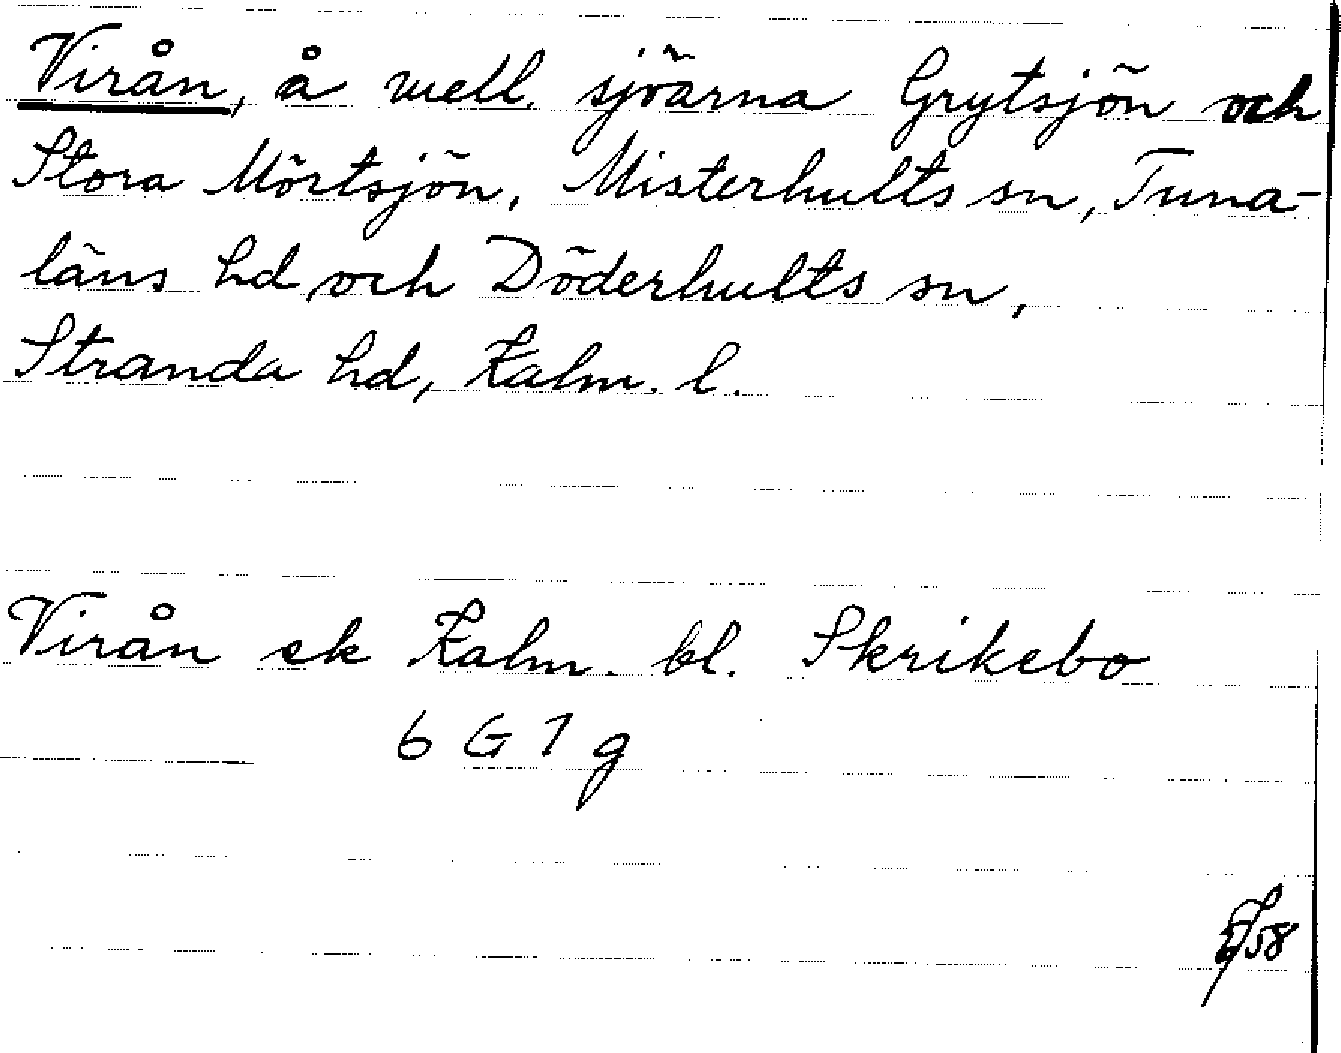 Virån, å mell. sjöarna Grytsjön och
Stora Mörtsjön, Misterhults sn, Tuna-
läns hd och Döderhults sn,
Stranda hd, Kalm. l.
Virån ek Kalm. bl. Skrikebo
6 G 7 g
58